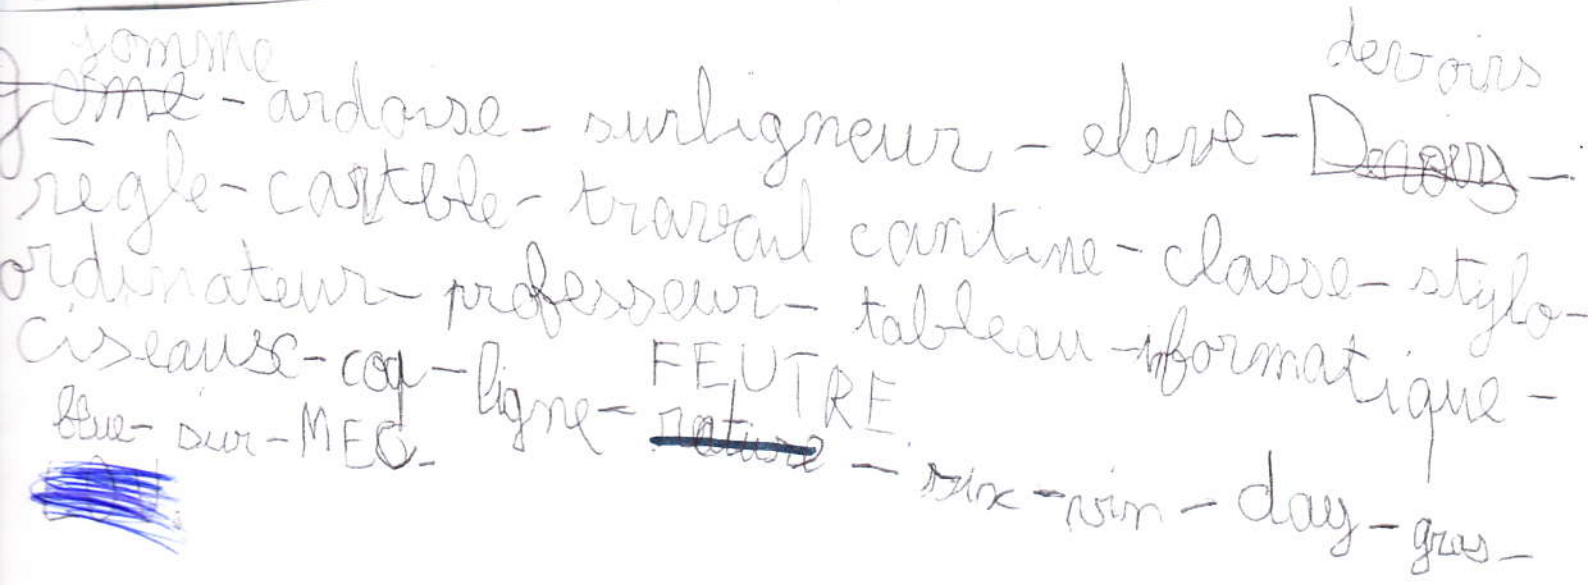 gomme devoirs
gome - ardoise - surligneur - eleve - Devoirs -
règle - cartble - travail cantine - classe - stylo -
ordinateur - professeur - tableau - informatique -
ciseause - coq - ligne - FEUTRE
blue - sur - MEC - - six - vin - day - gras -